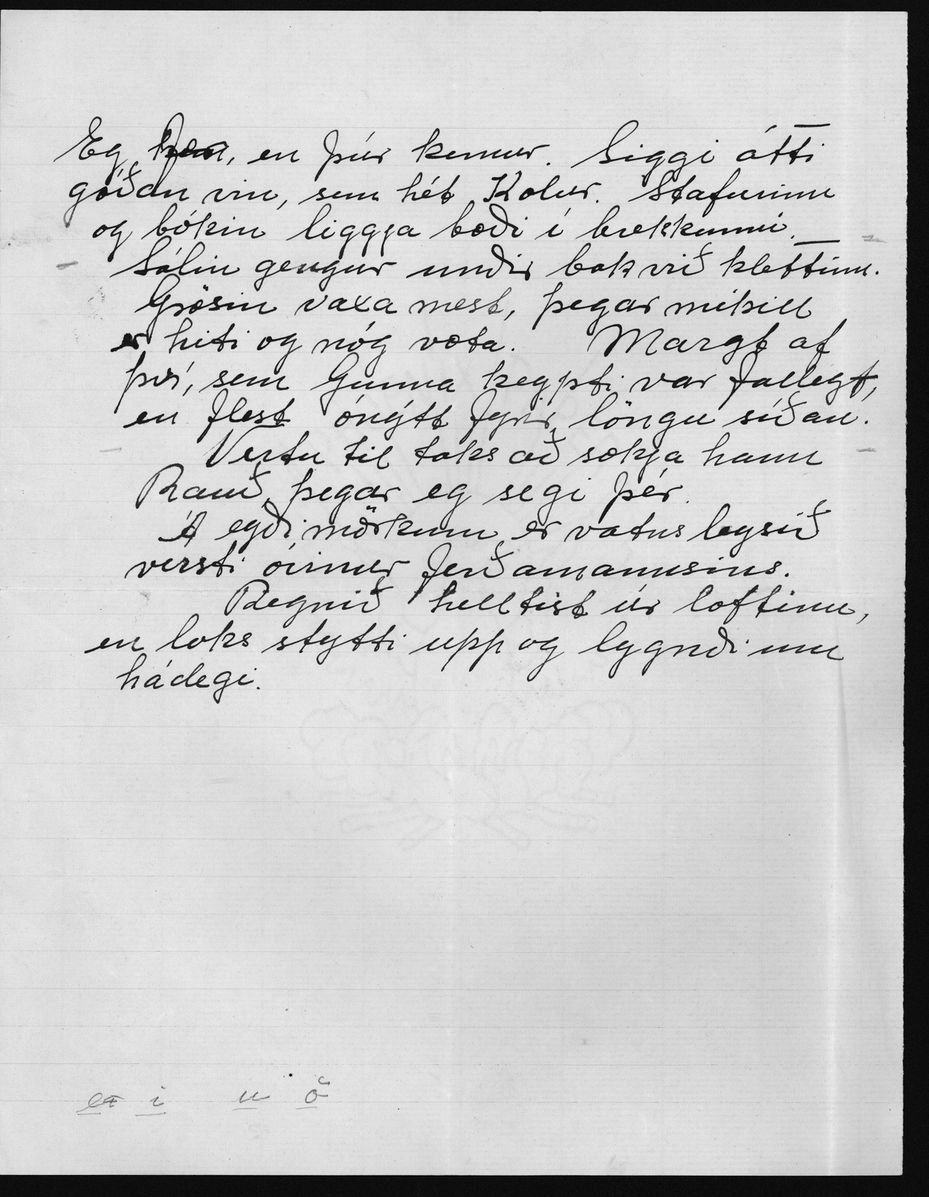 Eg kem, en þúr kemur. Siggi átti
góðan vin, sem hét Kolur. Stafurinn
og bókin liggja bæði í brekkunni.
Sólin gengur undir bak við klettinn.
Grösin vaxa mest, þegar mikill
er hiti og nóg væta. Margt af
því, sem Gunna keypti var fallegt,
en flest ónýtt fyrir löngu síðan.
Vertu til taks að sækja hann
Rauð, þegar eg segi þér.
Á eyðimörkum er vatnsleysið
versti óvinur ferðamannsins.
Regnið helltist úr loftinu,
en loks stytti upp og lygndi um
hádegi.
i u ö